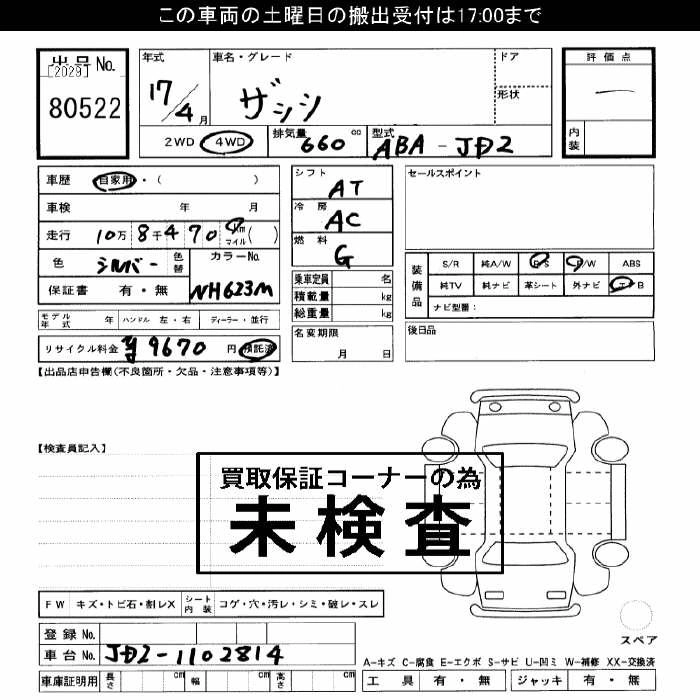 この車両の土曜日の搬出受付は17:00まで
出品No.
[2029]
80522
年式
17/4月
車名・グレード
ザッツ
ドア
形状
評価点
—
内装
2WD 4WD
排気量 660 cc
型式 ABA-JD2
車歴 自家用・( )
車検 年 月
走行 10万8千470 km マイル( )
色 シルバー 色替
カラーNo. NH623M
保証書 有・無
シフト AT
冷房 AC
燃料 G
乗車定員 名
積載量 kg
総重量 kg
名変期限
月 日
セールスポイント
装備品
S/R 純A/W P/S P/W ABS
純TV 純ナビ 革シート 外ナビ エアB
ナビ型番:
後日品
モデル年式 年 ハンドル 左・右 ディーラー・並行
リサイクル料金 9670 円 預託済
【出品店申告欄(不良箇所・欠品・注意事項等)】
【検査員記入】
買取保証コーナーの為
未検査
FW キズ・トビ石・割レX シート内装 コゲ・穴・汚レ・シミ・破レ・スレ
登録No.
車台No. JD2-1102814
車庫証明用 長さ cm 幅 cm 高さ cm
スペア
A-キズ C-腐食 E-エクボ S-サビ U-凹ミ W-補修 XX-交換済
工具 有・無 ジャッキ 有・無